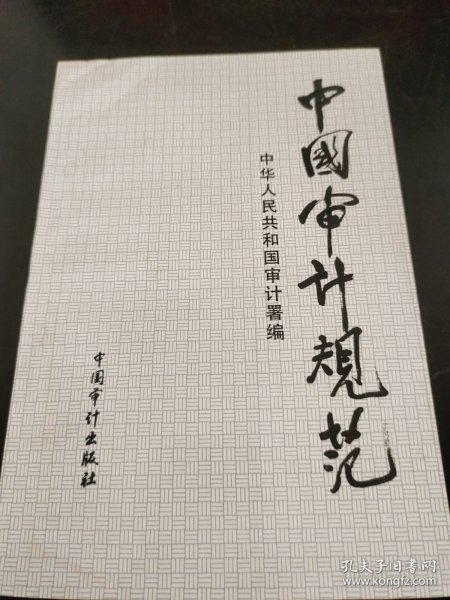 中國审计規范
中华人民共和国审计署编
中国审计出版社
孔夫子旧书网
www.kongfz.com